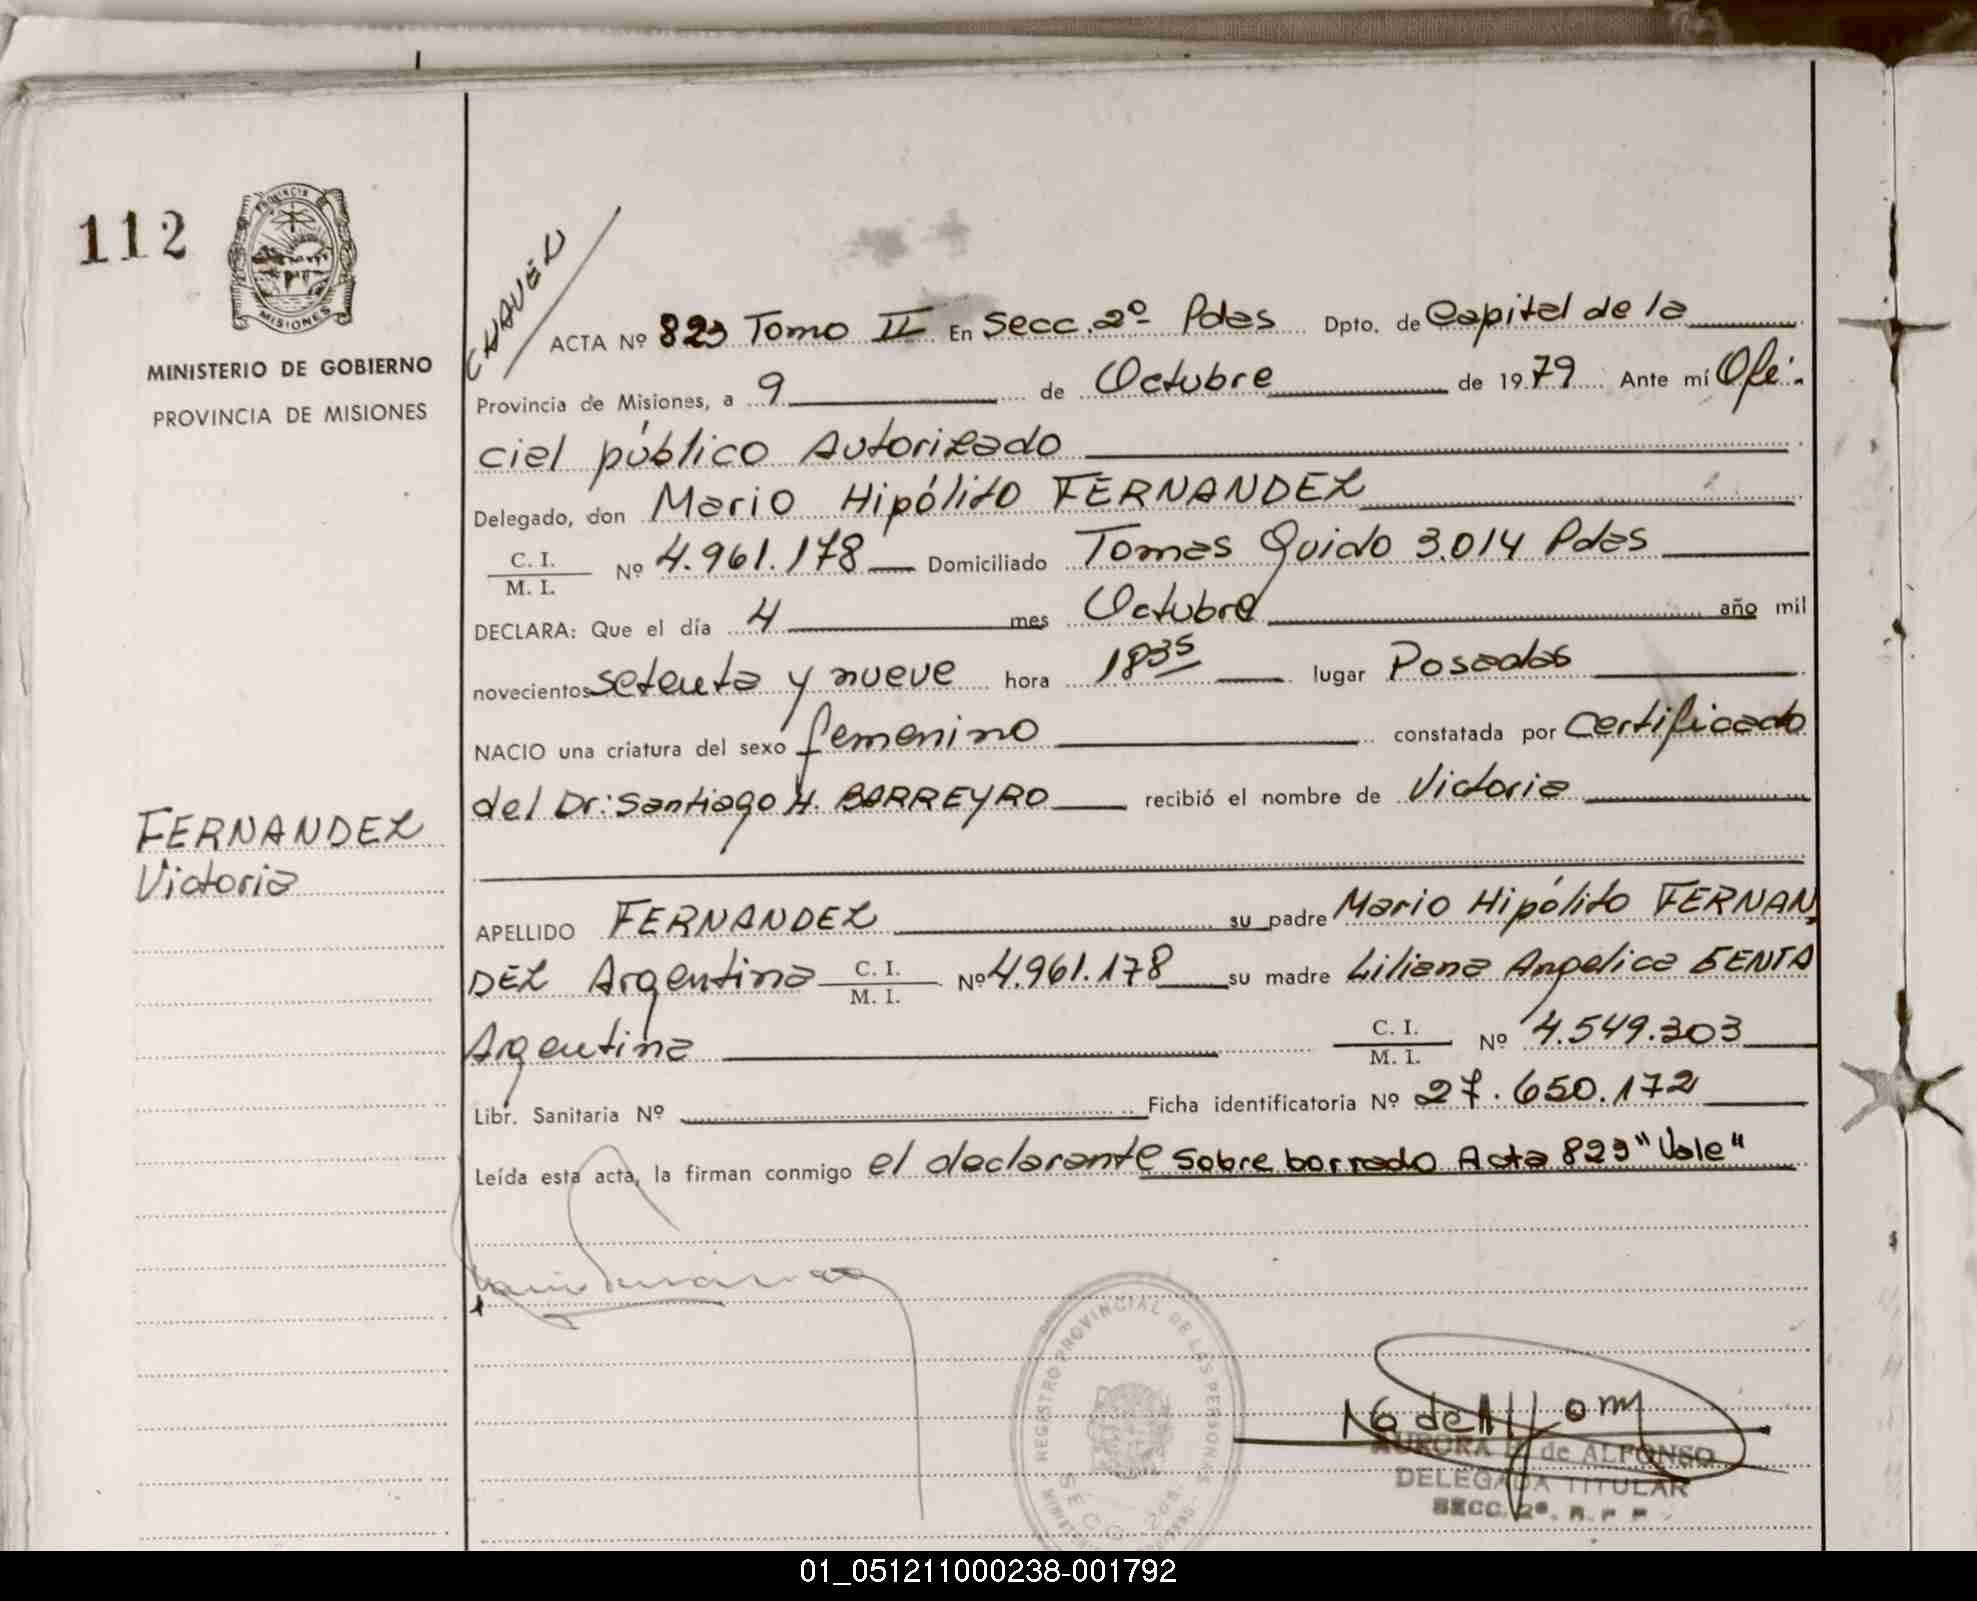 112
PROVINCIA
MISIONES
MINISTERIO DE GOBIERNO
PROVINCIA DE MISIONES
FERNANDEZ
Victoria
ACTA Nº 823 Tomo II En Secc. 2º Pdas Dpto. de Capital de la
Provincia de Misiones, a 9 de Octubre de 1979 Ante mí Ofi-
cial público Autorizado
Delegado, don Mario Hipólito FERNANDEZ
C. I.
M. I. Nº 4.961.178 Domiciliado Tomas Guido 3.014 Pdas
DECLARA: Que el día 4 mes Octubre año mil
novecientos setenta y nueve hora 1835 lugar Posadas
NACIO una criatura del sexo femenino constatada por Certificado
del Dr: Santiago H. BARREYRO recibió el nombre de Victoria
APELLIDO FERNANDEZ su padre Mario Hipólito FERNAN
DEZ Argentina C. I. M. I. Nº 4.961.178 su madre Liliana Angelica GENTA
Argentina C. I. M. I. Nº 4.549.303
Libr. Sanitaria Nº Ficha identificatoria Nº 27.650.172
Leída esta acta, la firman conmigo el declarante Sobre borrado Acta 823 "Vale"
REGISTRO PROVINCIAL DE LAS PERSONAS
SECC. 2da.
AURORA de ALFONSO
DELEGADA TITULAR
SECC. 2ª. R. P. P.
01_051211000238-001792